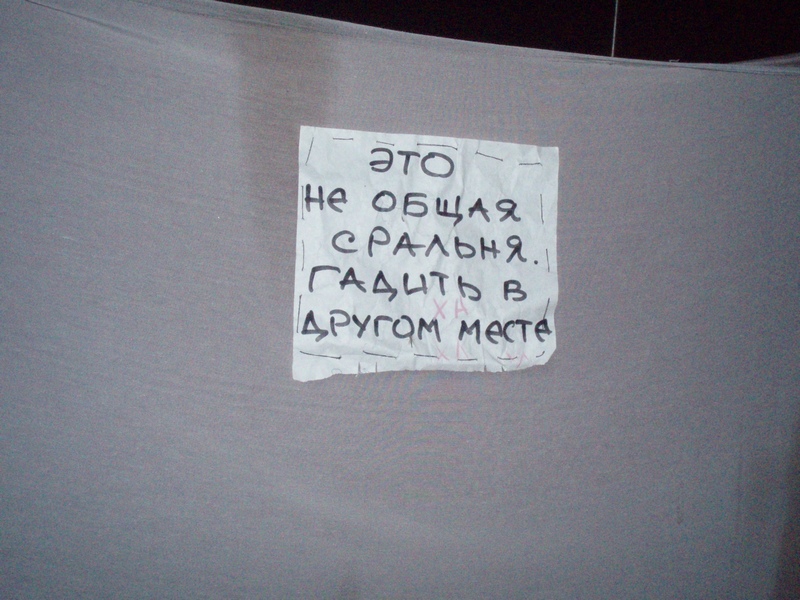 ЭТО
Не ОБЩАЯ
СРАЛЬНЯ.
ГАДИТЬ В
ХА
ДРУГОМ МеСТе